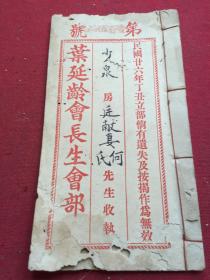 第 號
民國廿六年丁丑立部倘有遺失及按揭作為無效
少泉 房 廷猷妻何氏 先生收執
葉延齡會長生會部